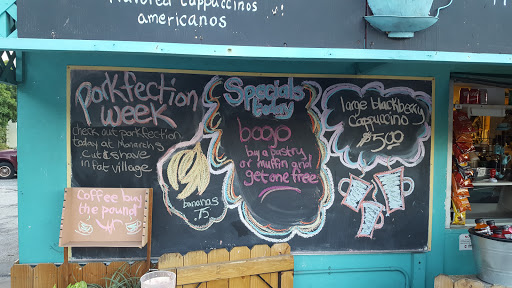 flavored cappuccinos
americanos
Porkfection
Week
check out porkfection
today at Monarch's
Cut & Shave
in fat village
Coffee by
the pound
bananas
.75
Specials
today
bogo
buy a pastry
or muffin and
get one free
large blackberry
cappuccino
$5.00